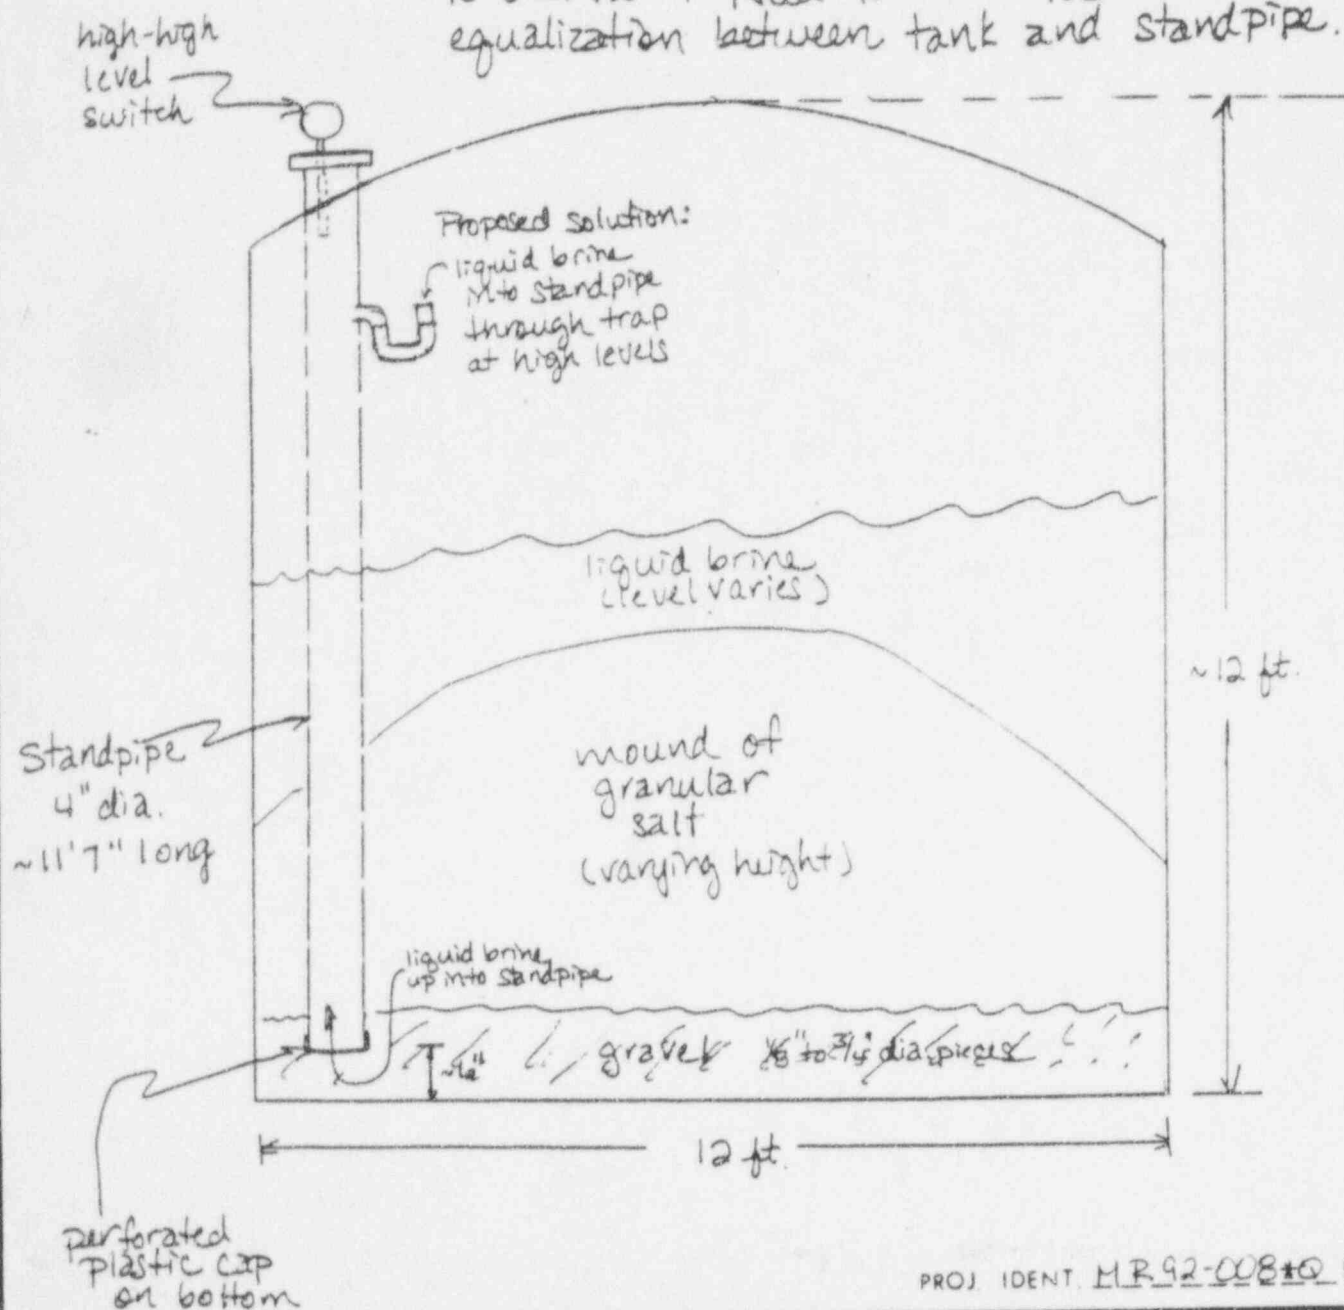 equalization between tank and standpipe.
high-high
level
switch
Proposed solution:
liquid brine
into standpipe
through trap
at high levels
liquid brine
(level varies)
~12 ft.
Standpipe
4" dia.
~11'7" long
mound of
granular
salt
(varying height)
liquid brine
up into standpipe
gravel 1/8" to 3/4" dia. pieces
12 ft.
perforated
plastic cap
on bottom
PROJ IDENT. MR 92-008*Q